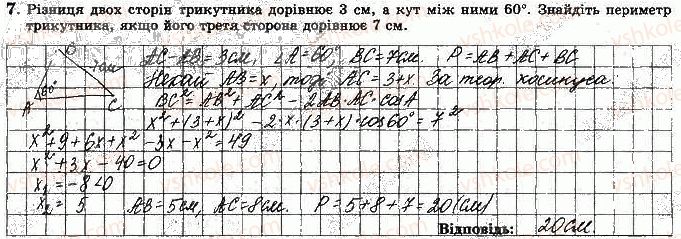 7. Різниця двох сторін трикутника дорівнює 3 см, а кут між ними 60°. Знайдіть периметр
трикутника, якщо його третя сторона дорівнює 7 см.
AC - AB = 3см, ∠A = 60°, BC = 7см. P = AB + AC + BC
7см
Нехай AB = x, тоді AC = 3+x. За теор. косинуса:
60°
A C
BC² = AB² + AC² - 2AB·AC·cosA
x² + (3+x)² - 2·x·(3+x)·cos60° = 7²
x² + 9 + 6x + x² - 3x - x² = 49
x² + 3x - 40 = 0
x₁ = -8 < 0
x₂ = 5 AB = 5см, AC = 8см. P = 5+8+7 = 20(см)
Відповідь: 20см.